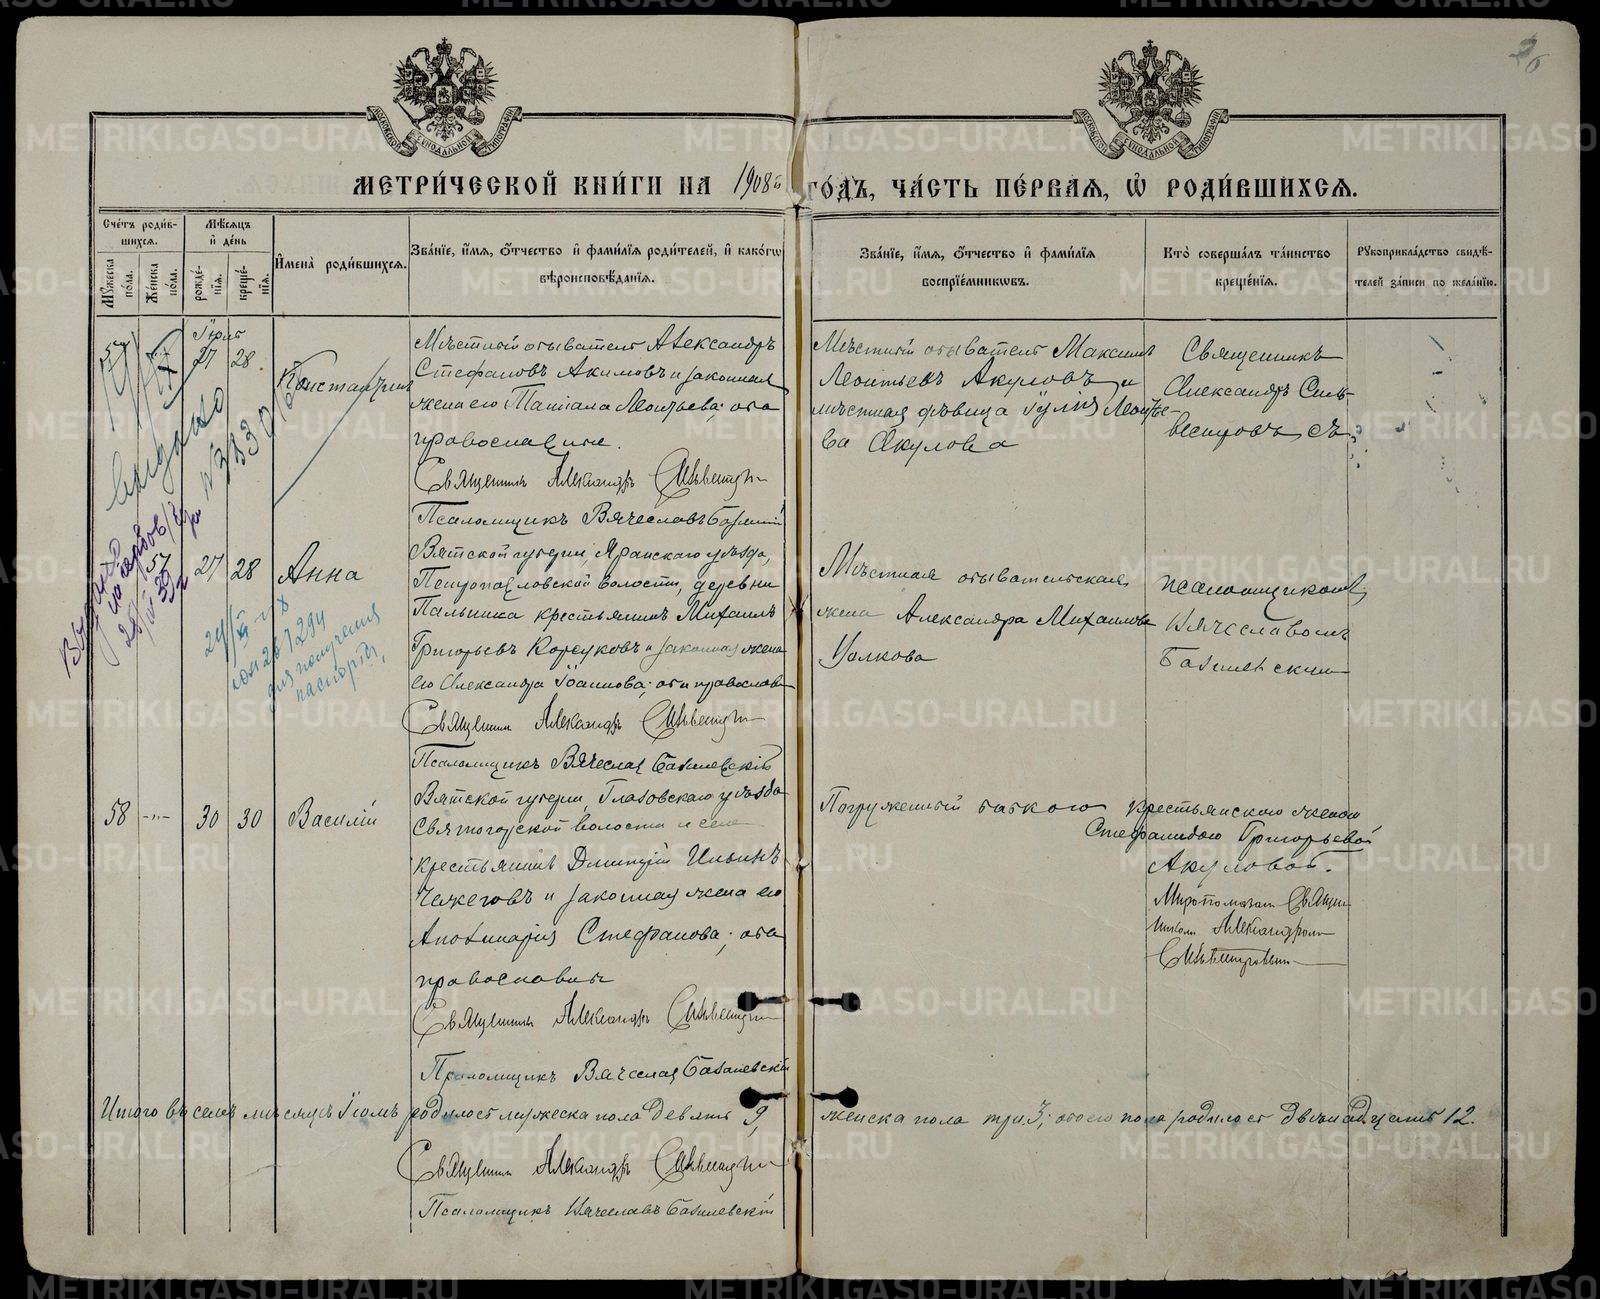 МЕТРИ́ЧЕСКОЙ КНИ́ГИ НА 1908й ГО́ДЪ, ЧА́СТЬ ПЕ́РВАЯ, Ѡ҆ РОДИ́ВШИХСѦ.
Сче́тъ роди́в-
шихсѧ.
Мꙋ́жеска по́ла.
Же́нска по́ла.
Мѣ́сѧцъ и҆ де́нь
рожде́-
нїѧ.
креще́-
нїѧ.
И҆мена̀ роди́вшихсѧ.
Зва́нїе, и҆́мѧ, ѻ҆́тчество и҆ фами́лїѧ роди́телей, и҆ како́гѡ
вѣроисповѣ́данїѧ.
Зва́нїе, и҆́мѧ, ѻ҆́тчество и҆ фами́лїѧ
воспрїе́мникѡвъ.
Кто̀ соверша́лъ та́инство
креще́нїѧ.
Рꙋкоприкла́дство свидѣ́-
телей за́писи по жела́нїю.
Іюль
57 27 28 Константинъ
Мѣстный обыватель Александръ
Стефановъ Акимовъ и законная
жена его Татіана Леонтьева; оба
православные.
Священникъ Александръ Сильвестровъ
Псаломщикъ Вячеславъ Базилевскій
Мѣстный обыватель Максимъ
Леонтьевъ Акуловъ и
мѣстная дѣвица Іулія Леонтье-
ва Акулова
Священникъ
Александръ Силь-
вестровъ съ
выдано
57 27 28 Анна
Вятской губерніи, Яранскаго уѣзда,
Петропавловской волости, деревни
крестьянинъ Михаилъ
Григорьевъ и законная жена
его Александра Іоаннова; оба православн.
Священникъ Александръ Сильвестровъ
Псаломщикъ Вячеславъ Базилевскій
Мѣстная обывательская
жена Александра Михайлова
Волкова
псаломщикомъ
Вячеславомъ
Базилевскимъ
для полученія
паспорта,
58 -„- 30 30 Василій
Вятской губерніи, Глазовскаго уѣзда
Святогорской волости и села
крестьянинъ Дмитрій Ильинъ
Чежеговъ и законная жена его
Аполинарія Стефанова; оба
православные
Священникъ Александръ Сильвестровъ
Псаломщикъ Вячеславъ Базилевскій
Погруженный бабкою крестьянскою женою
Стефанидою Григорьевой
Акуловой.
Миропомазанъ Священ-
никомъ Александромъ
Сильвестровымъ
Итого въ семъ мѣсяцѣ Іюлѣ родилось мужеска пола девять 9, женска пола три 3; обоего пола родилось двѣнадцать 12.
Священникъ Александръ Сильвестровъ
Псаломщикъ Вячеславъ Базилевскій
METRIKI.GASO-URAL.RU